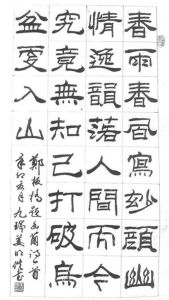 春雨春風寫妙顏幽
情逸韻落人間而今
究竟無知己打破烏
盆更入山
鄭板橋題幽蘭詩一首
辛卯亥月九瑞